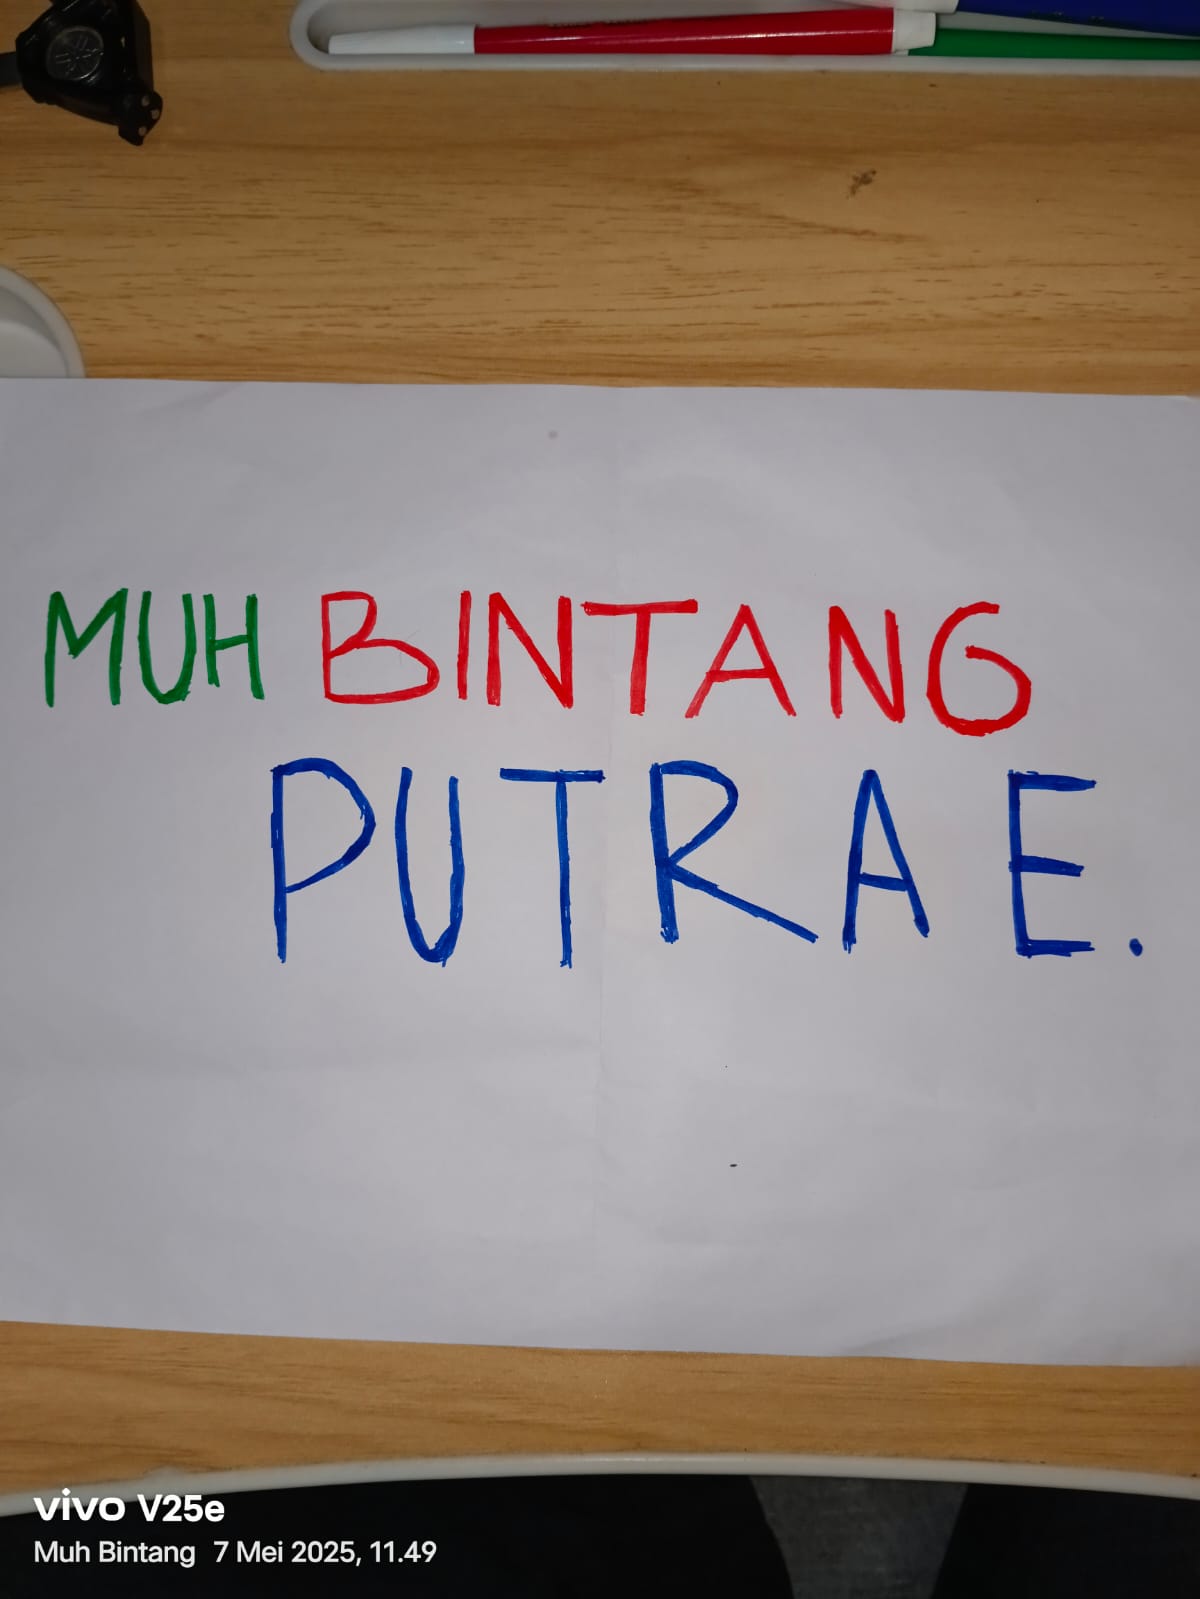 MUH BINTANG
PUTRA E.
vivo V25e
Muh Bintang 7 Mei 2025, 11.49